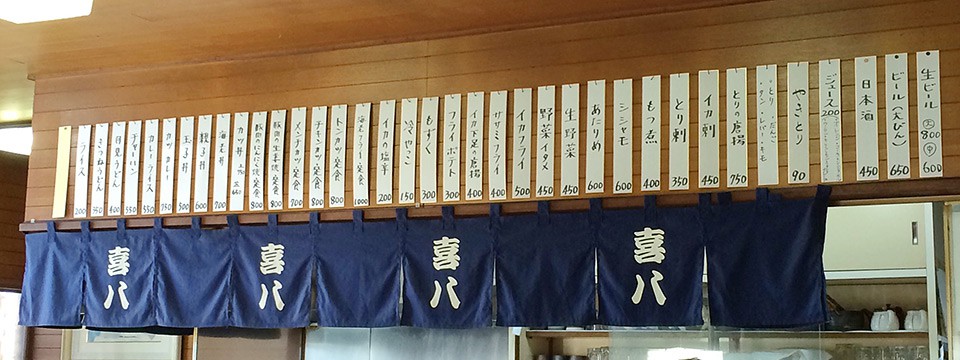 生ビール 大 800 中 600
ビール(大びん) 650
日本酒 450
ジュース 200
やきとり 90
とりの唐揚 750
イカ刺 450
とり刺 350
もつ煮 400
シシャモ 600
あたりめ 600
生野菜 450
野菜イタメ 450
イカフライ 500
ササミフライ 400
イカ下足の唐揚 400
フライドポテト 300
もずく 300
冷やっこ 150
イカの塩辛 200
海老フライ定食 1000
トンカツ定食 800
チキンカツ定食 800
メンチカツ定食 700
豚肉の生姜焼定食 800
豚肉のにんにく焼定食 800
カツ丼
海老丼 700
親子丼 600
玉子丼 500
カツカレー 750
カレーライス 550
チャーハン 550
月見うどん 400
きつねうどん 350
ライス 200
喜八
喜八
喜八
喜八